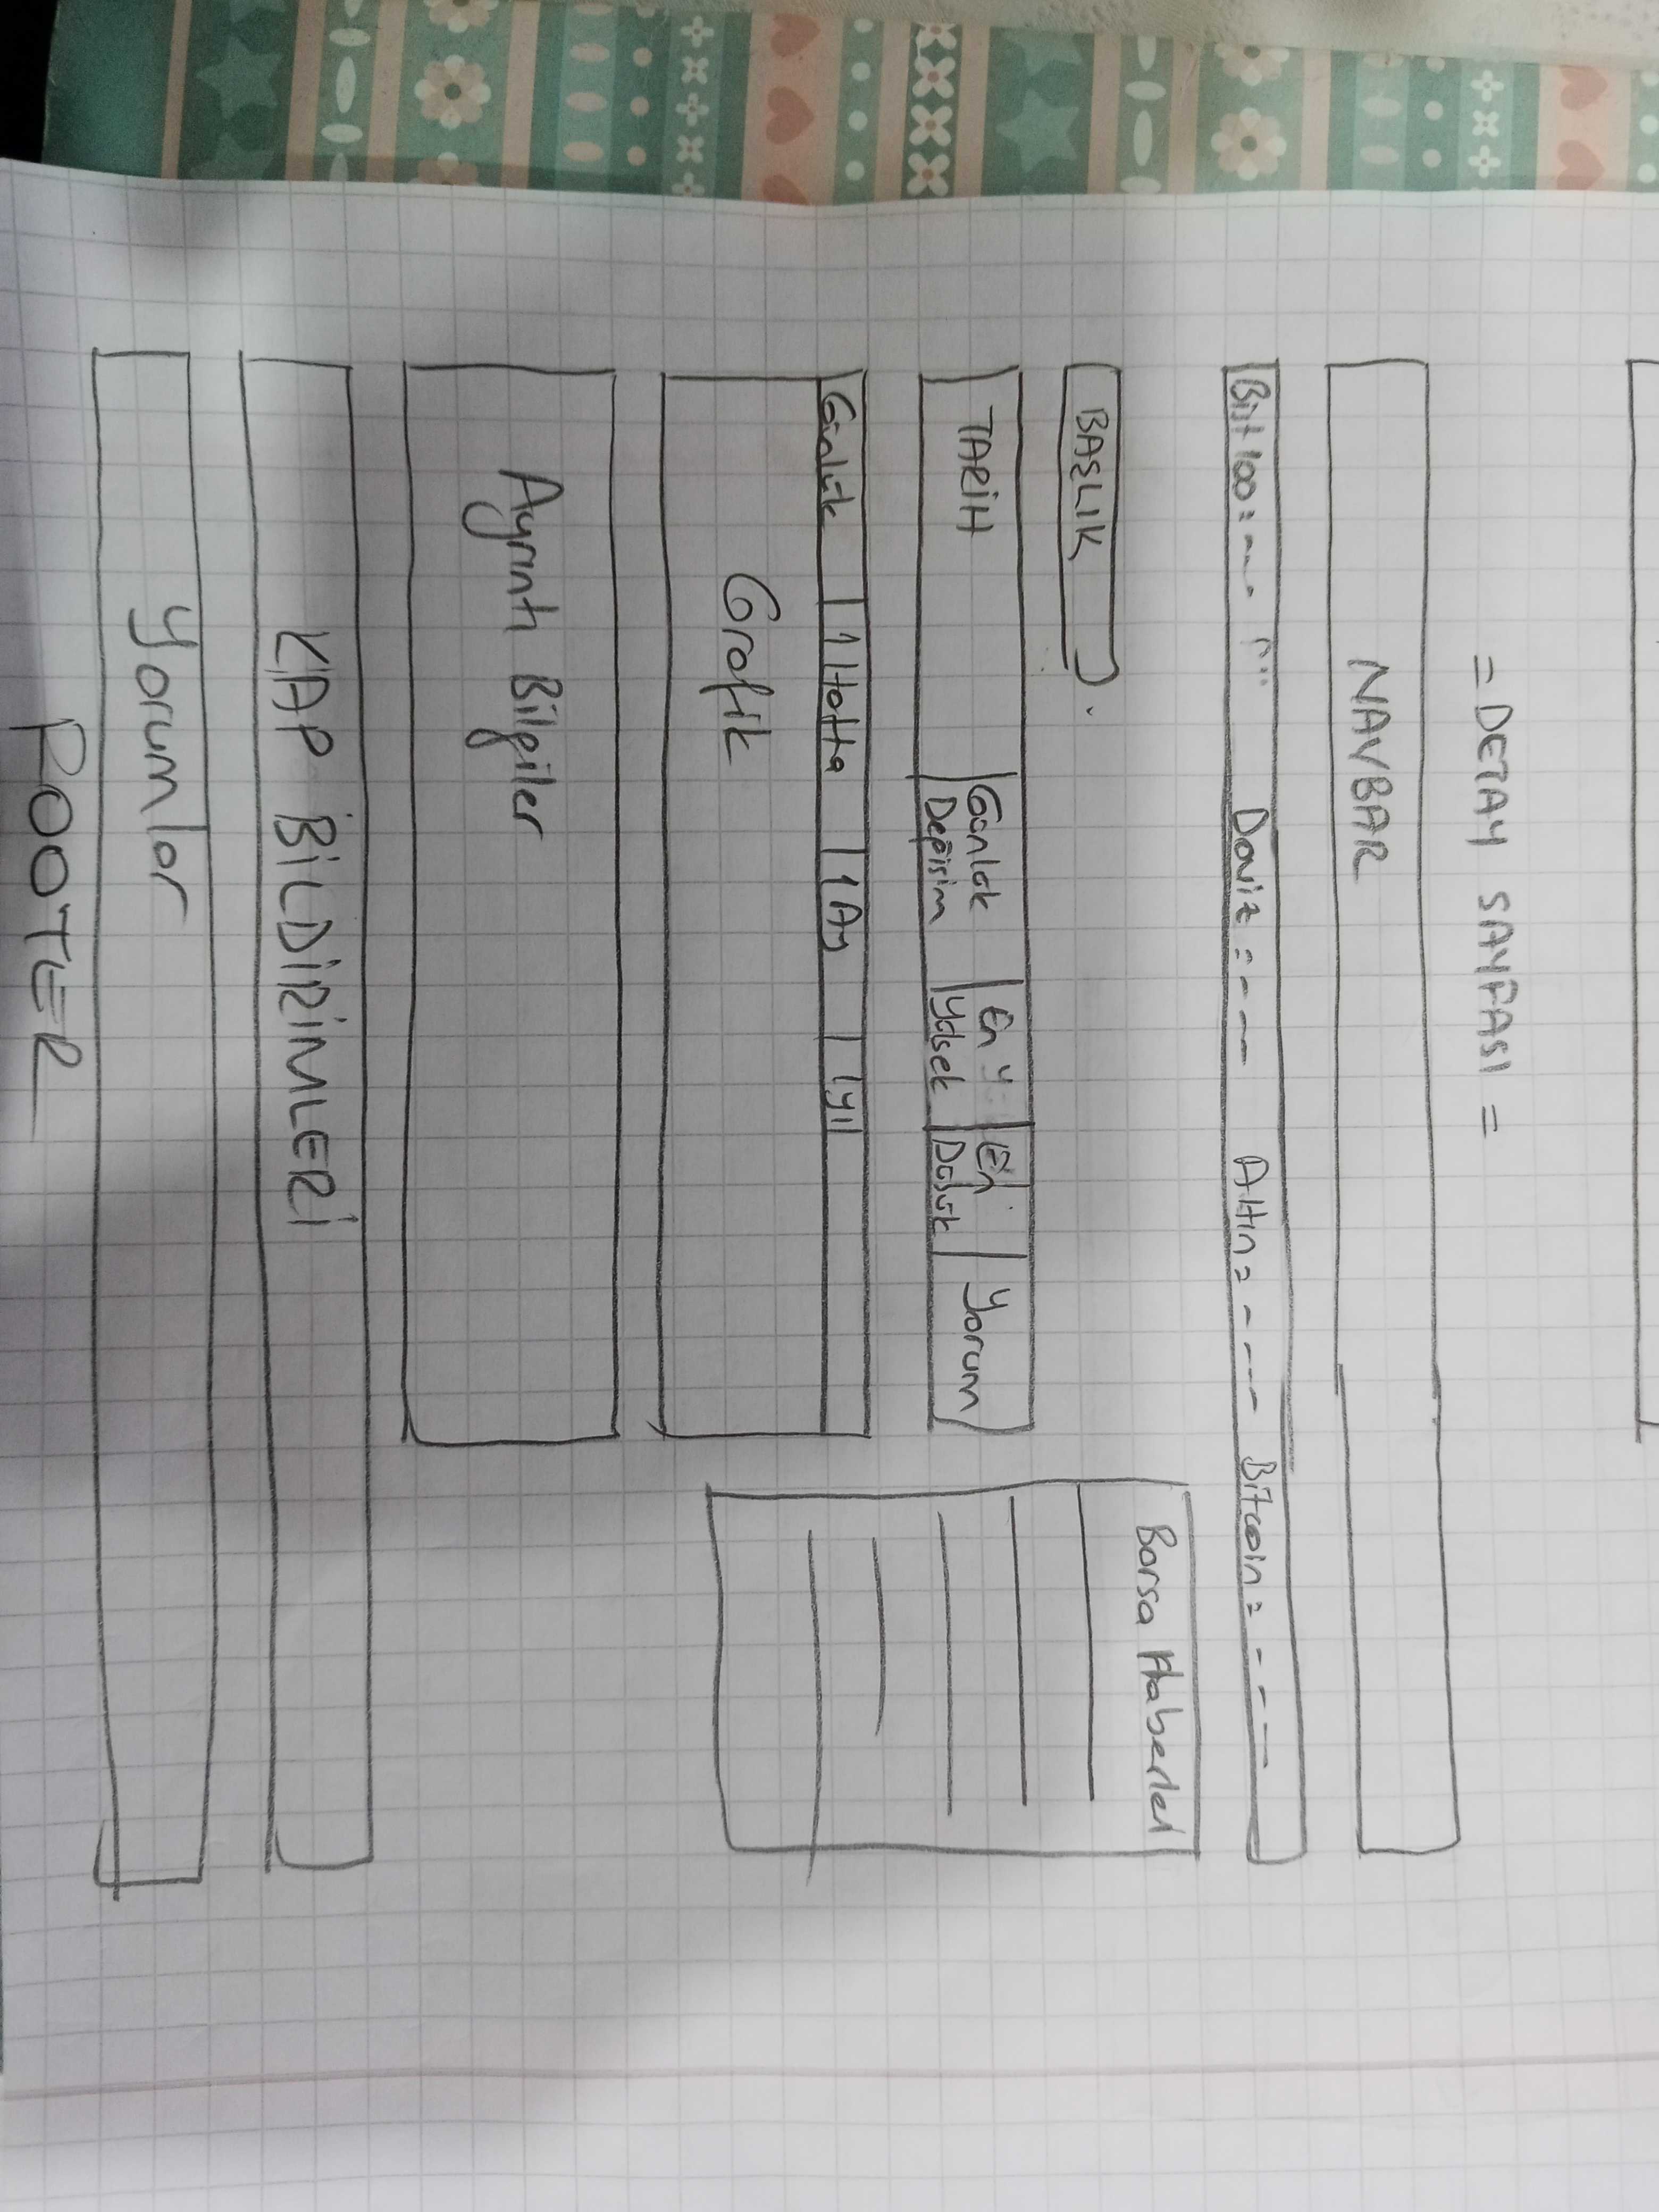 = DETAY SAYFASI =
NAVBAR
Bist 100 = --- Doviz = --- Altın = ---- Bitcoin = ----
BAŞLIK
Borsa Haberleri
TARİH Günlük Değişim En Yüksek En Düşük Yorum
Günlük 1 Hafta 1 Ay 1 yıl
Grafik
Ayrıntı Bilgiler
KAP BİLDİRİMLERİ
Yorumlar
FOOTER